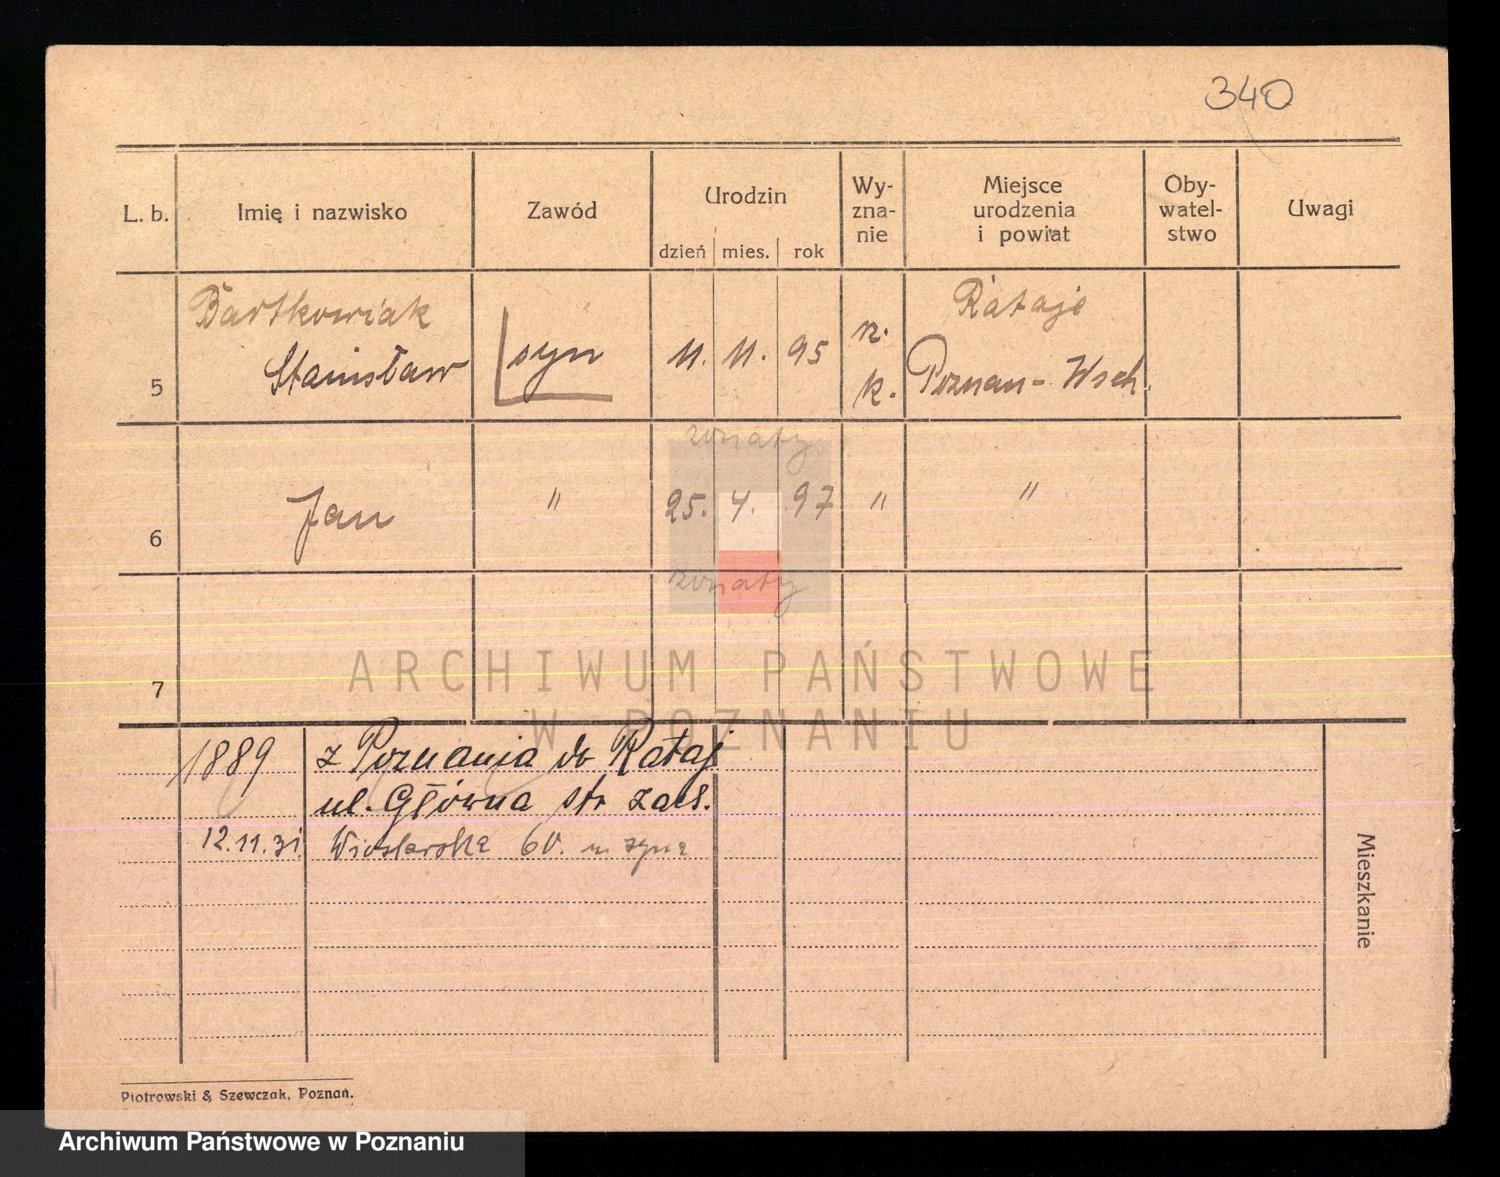 340
L. b.
Imię i nazwisko
Zawód
Urodzin
dzień mies. rok
Wy-
zna-
nie
Miejsce
urodzenia
i powiat
Oby-
watel-
stwo
Uwagi
Bartkowiak Rataje
5 Stanisław syn 11. 11. 95 r. k. Poznan-Wsch.
żonaty
6 Jan " 25. 4. 97 " "
żonaty
7
ARCHIWUM PAŃSTWOWE
W POZNANIU
1889 z Poznania do Rataj
ul. Główna
12.11.31 Wioślarska 60.
Mieszkanie
Piotrowski & Szewczak, Poznań.
Archiwum Państwowe w Poznaniu